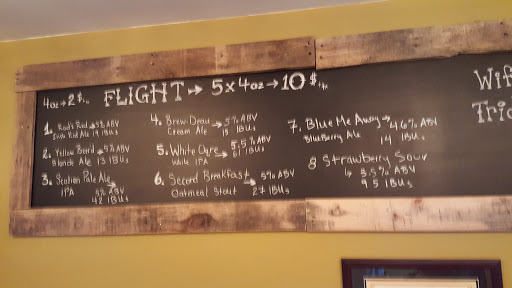 4oz → 2 $.
FLIGHT → 5 x 4oz → 10 $.
Wif
Trid
1. Rod's Red → 5% ABV
Irish Red Ale 19 IBUs
2. Yellow Board → 5% ABV
Blonde Ale 13 IBUs
3. Station Pale Ale →
IPA 5% ABV
42 IBUs
4. Brew-Deau → 5% ABV
Cream Ale 15 IBUs
5. White Ogre → 5.5% ABV
White IPA 61 IBUs
6. Second Breakfast → 5% ABV
Oatmeal Stout 27 IBUs
7. Blue Me Away → 4.6% ABV
BlueBerry Ale 14 IBUs
8 Strawberry Sour
↳ 3.5% ABV
9.5 IBUs